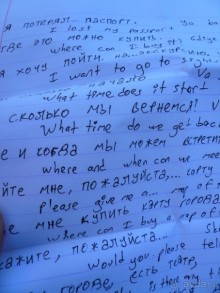 я потерял... паспорт.
I lost my passport.
где это можно купить
where can I buy it
я хочу пойти на
I want to go to
начало
What time does it start
сколько мы вернемся!
What time do we get bac
е и когда мы можем встрети
where and when can we mee
йте мне, пожалуйста... карту
Please give me a... map of
е мне купить карту города
where can I buy a map of
скажите, пожалуйста...
Would you please tel
городе есть театр,
is there any